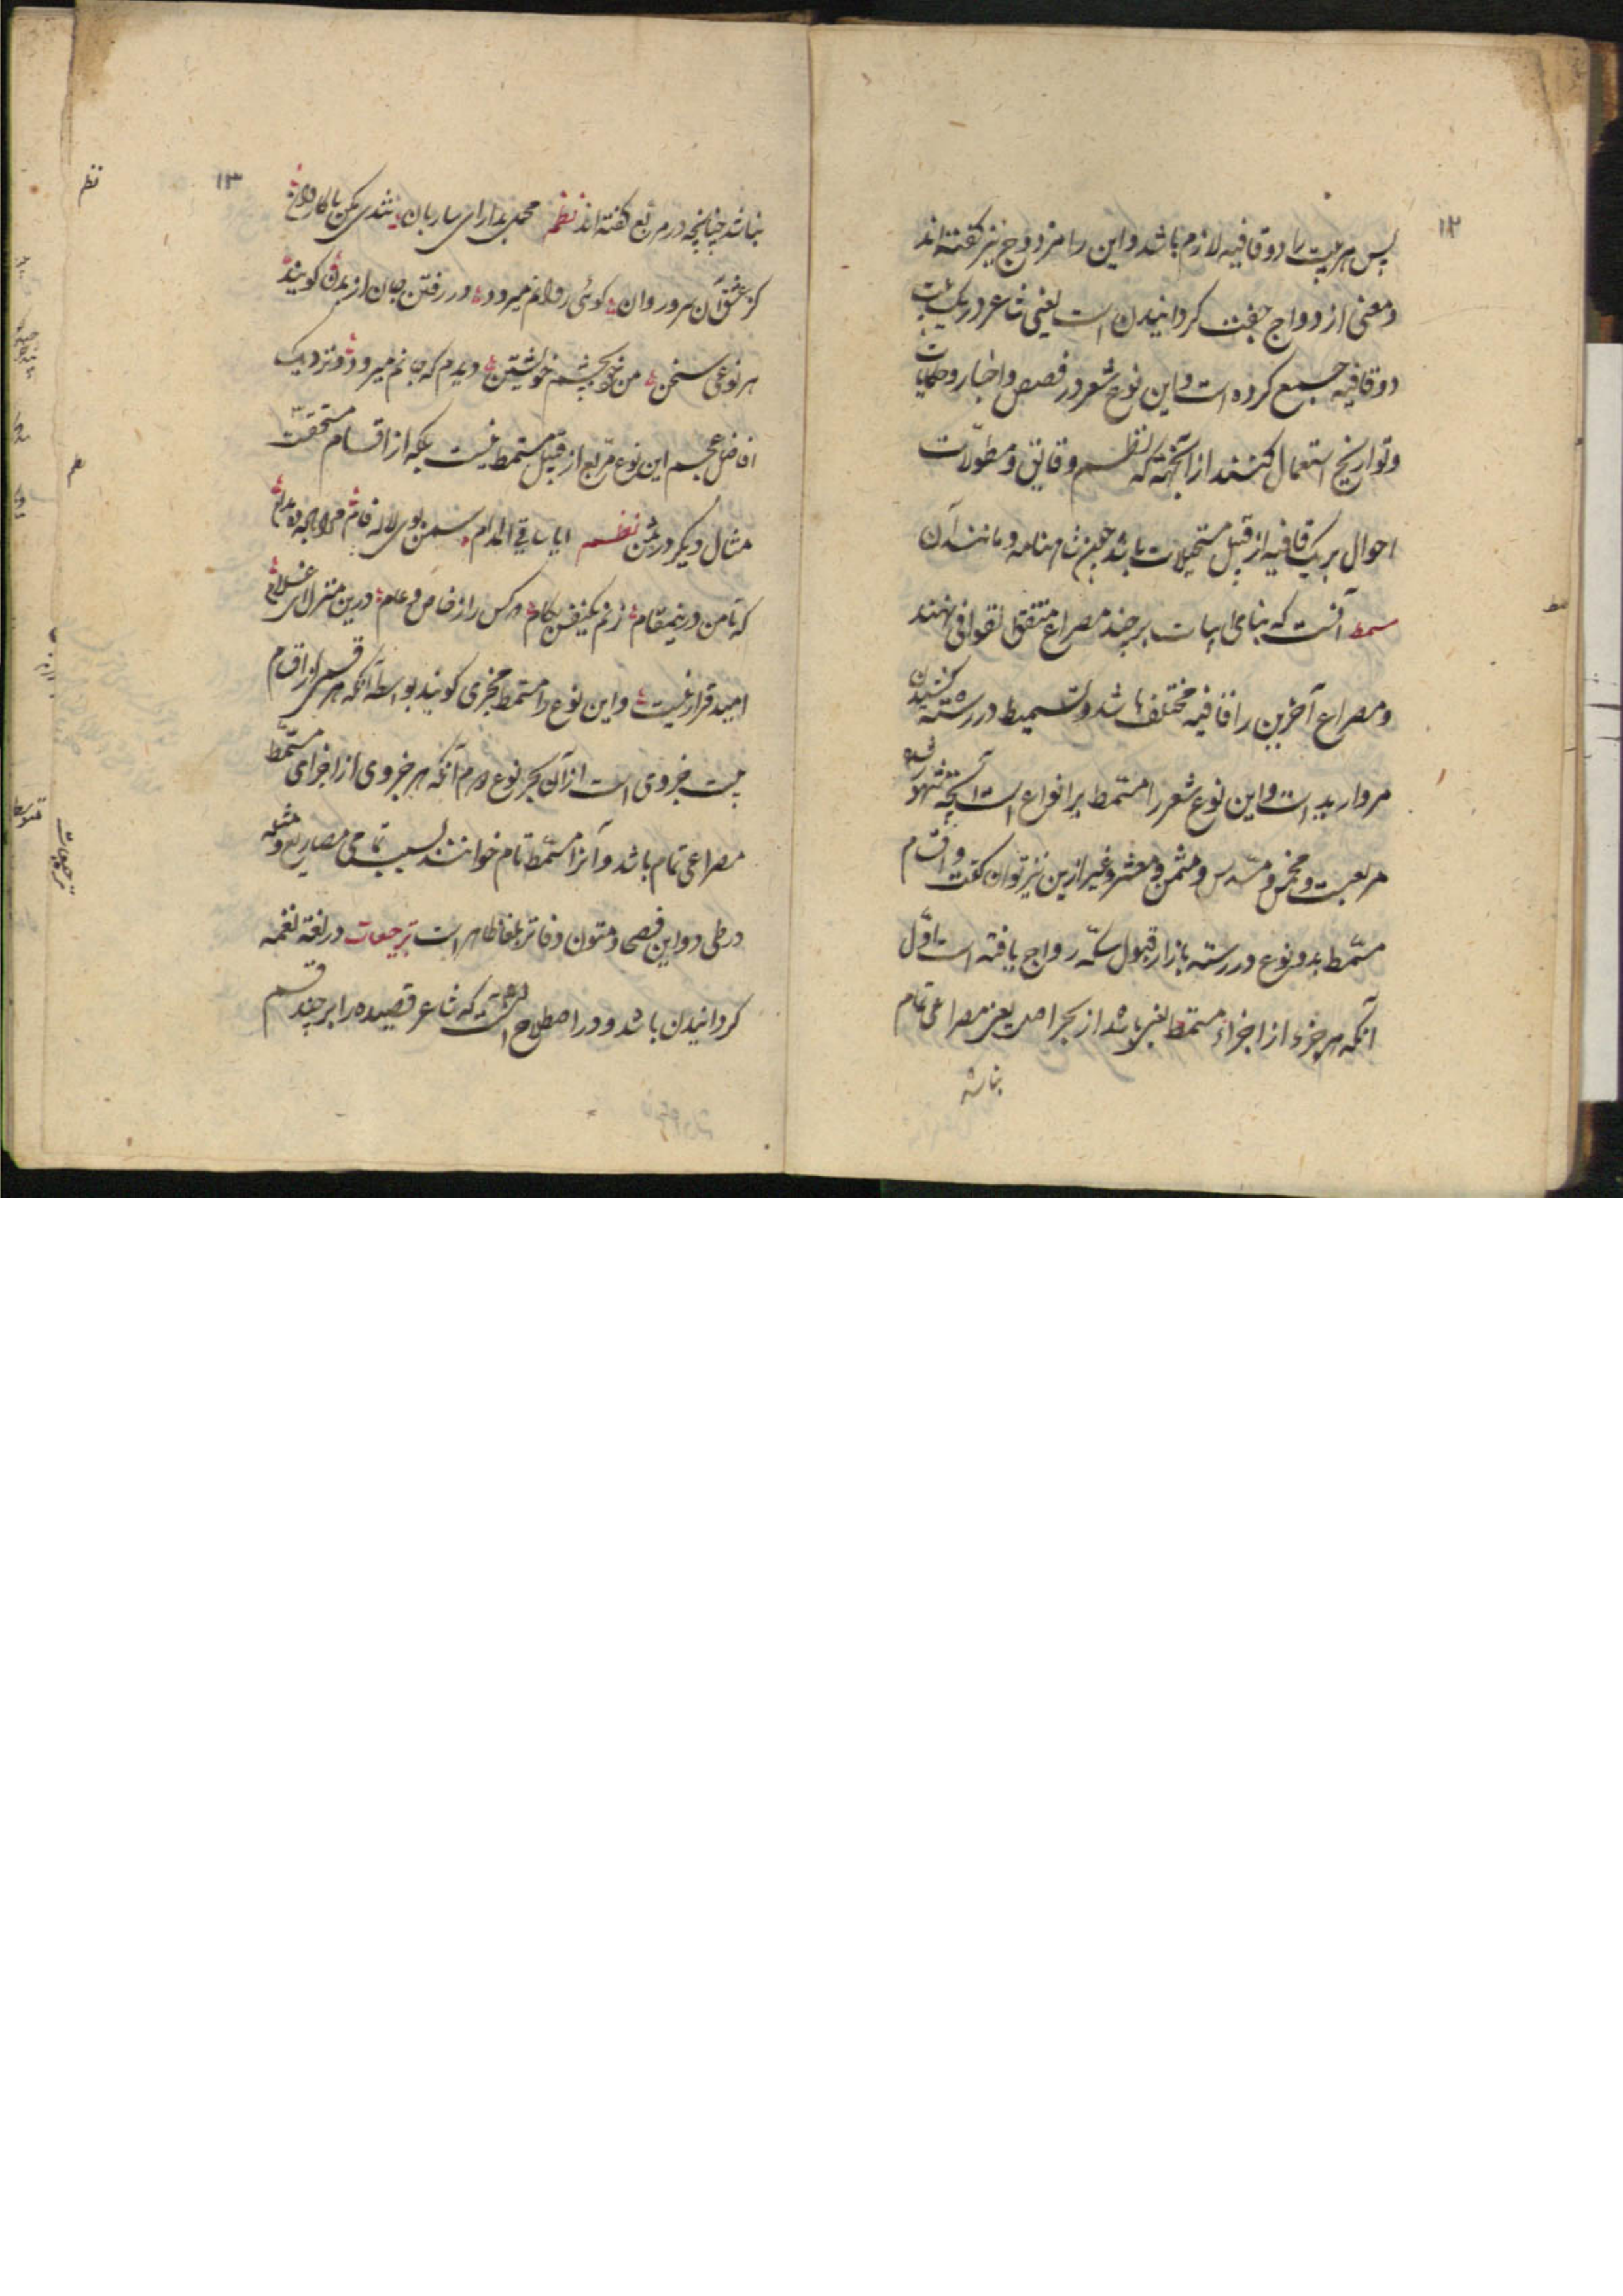 ۱۲
پس هر بیت را دو قافیه لازم باشد و این را مزدوج نیز گفته‌اند
و معنی ازدواج جفت کردانیدن است یعنی شاعر در یک بیت
دو قافیه جمع کرده است و این نوع شعر در قصص و اخبار و حکایات
و تواریخ استعمال کنند از آنجهته که نظم وقایق و مطولات
احوال بر یک قافیه از قبیل مستحیلات باشد چون شاهنامه و مانند آن
مسمط آنست که بنای ابیات بر چند مصراع متفق القوافی نهند
و مصراع آخرین را قافیه مختلف باشد و تسمیط در رشته کشیدن
مروارید است و این نوع شعر را مسمط بر انواع است آنچه مشهور شده
مربعست و مخمس و مسدس و مثمن و معشر و غیر ازین نیز توان گفت و اقسام
مسمط بدو نوع در رسته بازار قبول سکه رواج یافته است اول
آنکه هر جزء از اجزاء مسمط بغیر باشد از بحر اصل یعنی مصراعی تمام
نباشد
۱۳
نباشد چنانچه در مربع گفته‌اند نظم محمل بدار ای ساربان تندی مکن با کاروان
کز عشق آن سرو روان گوئی روانم میرود در رفتن جان از بدن گویند
هر نوعی سخن من خود بچشم خویشتن دیدم که جانم میرود و نزدیک
افاضل عجم این نوع مربع از قبیل مسمط نیست بلکه از اقسام مستحقت
مثال دیکر در مثمن نظم ایا ساقی المدام سمن بوی لاله فام
که تا من درینمقام زنم یکنفس بکام که کس را ز خاص و عام درین منزل ای غلام
امید قرار نیست و این نوع را مسمط مجزی کویند بواسطه آنکه هر قسمی از اقسام
بیت جزوی است از آن بحر نوع دوم آنکه هر جزوی از اجزای مسمط
مصراعی تمام باشد و آنرا مسمط تام خوانند بسبب تمامی مصاریع و مثله
در طی دواوین فصحا و متون دفاتر بلغا ظاهر است ترجیعات در لغة نغمه
کردانیدن باشد و در اصطلاح آنست که شاعر قصیده را بر چند قسم
نظم
ترجیعات